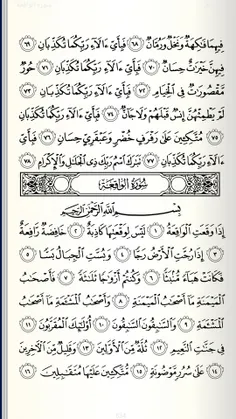 فِيهِمَا فَاكِهَةٌ وَنَخْلٌ وَرُمَّانٌ ٦٨ فَبِأَيِّ ءَالَاءِ رَبِّكُمَا تُكَذِّبَانِ ٦٩
فِيهِنَّ خَيْرَاتٌ حِسَانٌ ٧٠ فَبِأَيِّ ءَالَاءِ رَبِّكُمَا تُكَذِّبَانِ ٧١ حُورٌ
مَّقْصُورَاتٌ فِي الْخِيَامِ ٧٢ فَبِأَيِّ ءَالَاءِ رَبِّكُمَا تُكَذِّبَانِ ٧٣
لَمْ يَطْمِثْهُنَّ إِنسٌ قَبْلَهُمْ وَلَا جَانٌّ ٧٤ فَبِأَيِّ ءَالَاءِ رَبِّكُمَا تُكَذِّبَانِ
٧٥ مُتَّكِئِينَ عَلَىٰ رَفْرَفٍ خُضْرٍ وَعَبْقَرِيٍّ حِسَانٍ ٧٦ فَبِأَيِّ
ءَالَاءِ رَبِّكُمَا تُكَذِّبَانِ ٧٧ تَبَارَكَ اسْمُ رَبِّكَ ذِي الْجَلَالِ وَالْإِكْرَامِ ٧٨
سُورَةُ الْوَاقِعَةِ
بِسْمِ اللَّهِ الرَّحْمَٰنِ الرَّحِيمِ
إِذَا وَقَعَتِ الْوَاقِعَةُ ١ لَيْسَ لِوَقْعَتِهَا كَاذِبَةٌ ٢ خَافِضَةٌ رَّافِعَةٌ
٣ إِذَا رُجَّتِ الْأَرْضُ رَجًّا ٤ وَبُسَّتِ الْجِبَالُ بَسًّا ٥
فَكَانَتْ هَبَاءً مُّنبَثًّا ٦ وَكُنتُمْ أَزْوَاجًا ثَلَاثَةً ٧ فَأَصْحَابُ
الْمَيْمَنَةِ مَا أَصْحَابُ الْمَيْمَنَةِ ٨ وَأَصْحَابُ الْمَشْـَٔمَةِ مَا أَصْحَابُ
الْمَشْـَٔمَةِ ٩ وَالسَّابِقُونَ السَّابِقُونَ ١٠ أُولَٰئِكَ الْمُقَرَّبُونَ ١١
فِي جَنَّاتِ النَّعِيمِ ١٢ ثُلَّةٌ مِّنَ الْأَوَّلِينَ ١٣ وَقَلِيلٌ مِّنَ الْآخِرِينَ
١٤ عَلَىٰ سُرُرٍ مَّوْضُونَةٍ ١٥ مُّتَّكِئِينَ عَلَيْهَا مُتَقَابِلِينَ ١٦